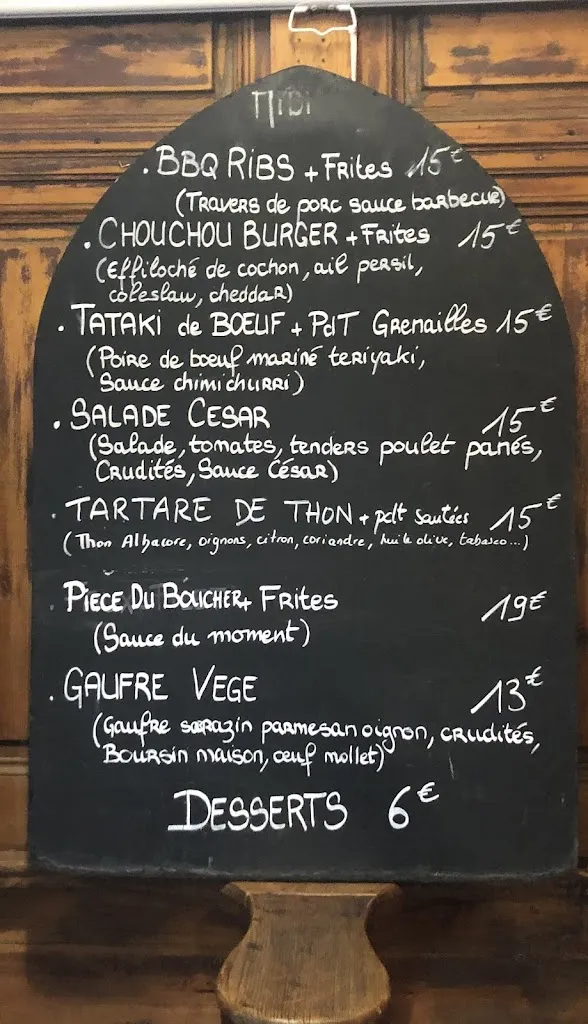 Midi
. BBQ RIBS + FRITES 15€
(TRAVERS de porc sauce barbecue)
. CHOUCHOU BURGER + FRITES 15€
(Effiloché de cochon, ail persil,
coleslaw, cheddar)
. TATAKI de BOEUF + PdT Grenailles 15€
(Poire de boeuf mariné teriyaki,
Sauce chimichurri)
. SALADE CESAR 15€
(Salade, tomates, tenders poulet panés,
Crudités, Sauce César)
. TARTARE DE THON + pdt sautées 15€
(Thon Albacore, oignons, citron, coriandre, huile olive, tabasco...)
. PIECE DU BOUCHER + FRITES 19€
(Sauce du moment)
. GAUFRE VEGE 13€
(Gaufre sarazin parmesan oignon, crudités,
Boursin maison, œuf mollet)
DESSERTS 6€